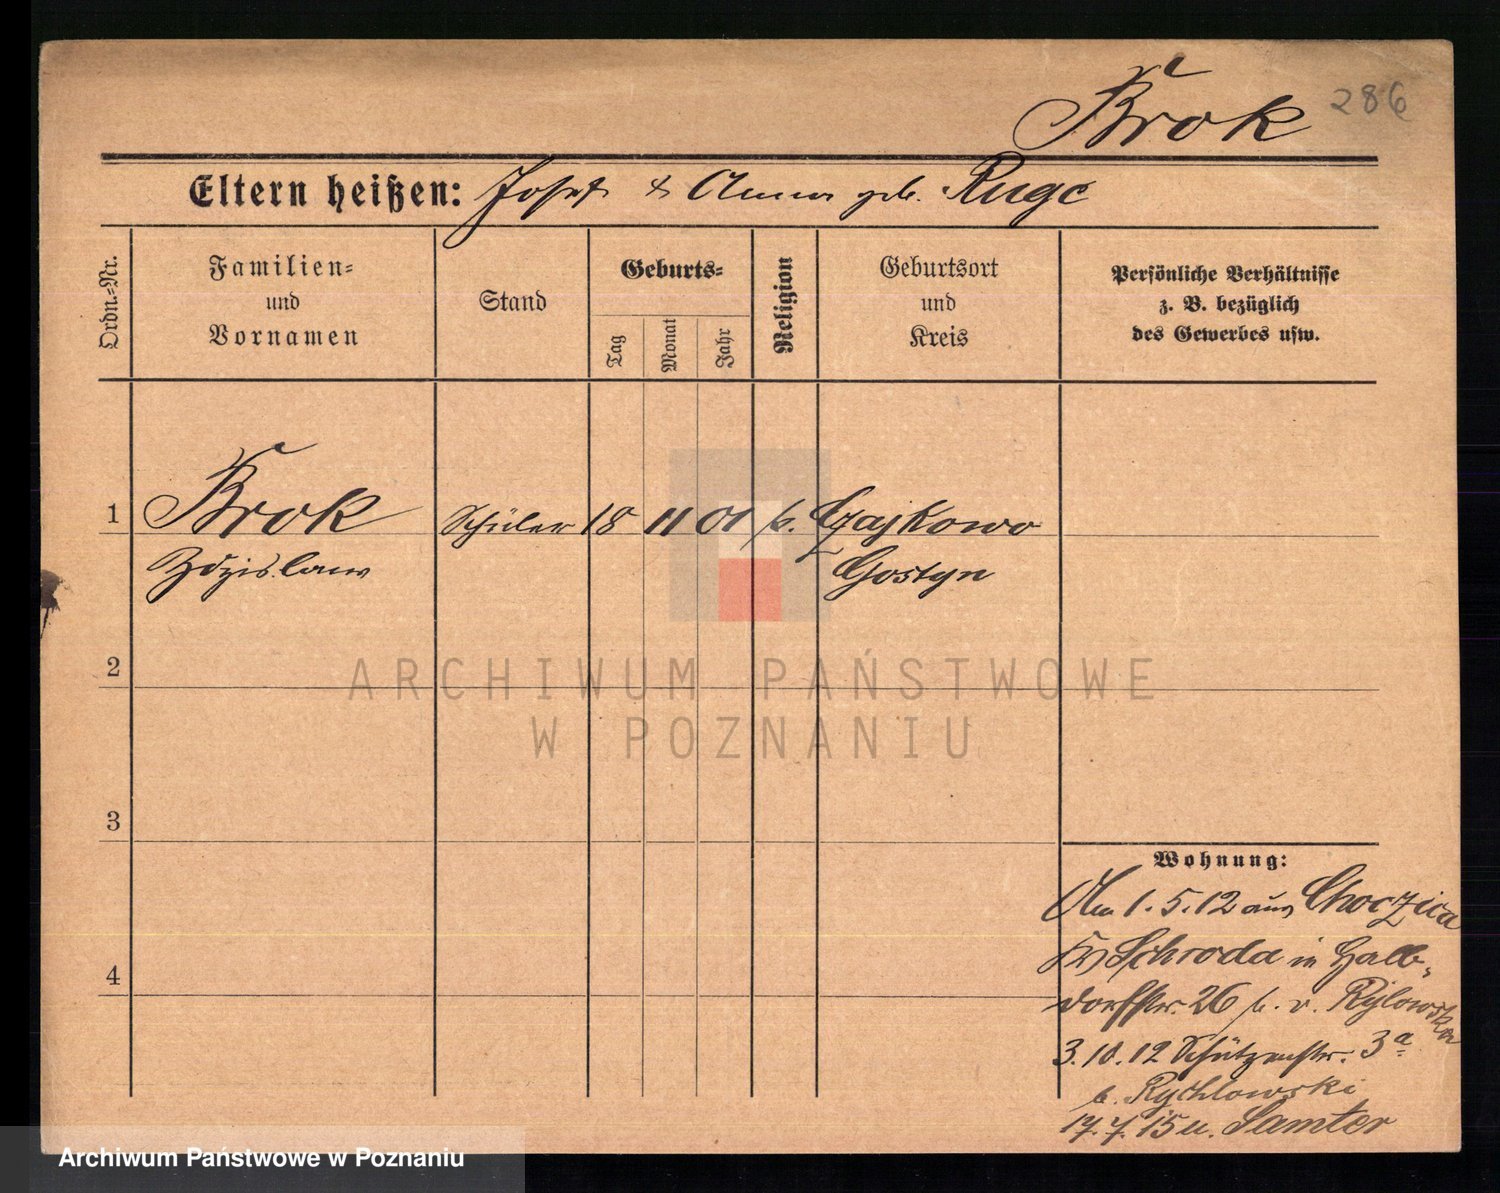 Brok 286
Eltern heißen: Josef & Anna geb. Ruge
Ordn.-Nr.
Familien-
und
Vornamen
Stand
Geburts-
Tag
Monat
Jahr
Religion
Geburtsort
und
Kreis
Persönliche Verhältnisse
z. B. bezüglich
des Gewerbes usw.
1 Brok Schüler 18 11 01 k. Czajkowo
Zdzislaw Gostyn
2
ARCHIWUM PAŃSTWOWE
W POZNANIU
3
Wohnung:
Am 1.5.12 aus Choczica
Kr. Schroda in Halb-
dorfstr. 26 b. v. Rylowska
4
3.10.12 Schützenstr. 3a
b. Rychlowski
17.7.15 u. Samter
Archiwum Państwowe w Poznaniu